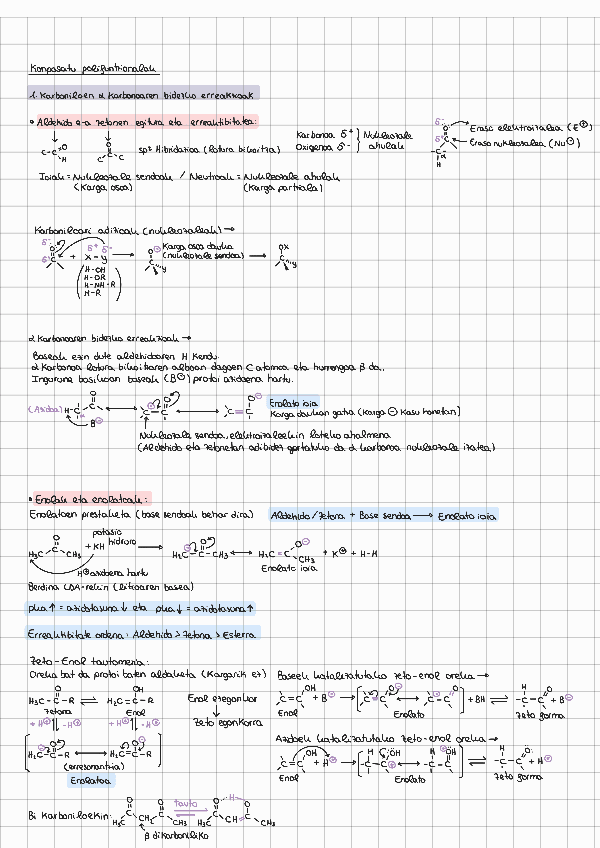 Konposatu polifuntzionalak
1. Karboniloen α karbonoaren bidezko erreakzioak
• Aldehido eta zetonen egitura eta erreaktibitatea:
sp² Hibridazioa (lotura bikoitza)
Karbonoa δ⁺
Oxigenoa δ⁻
Nukleozale ahulak
Eraso elektroizalea (E⊕)
Eraso nukleozalea (Nu⊖)
Ioiak = Nukleozale sendoak / Neutroak = Nukleozale ahulak
(Karga osoa) (Karga partziala)
Karboniloari adizioak (nukleozaleak) →
δ⁻ δ⁺ + X-Y
H-OH
H-OR
H-NH-R
H-R
Karga osoa dauka
(nukleozale sendoa)
OX
Y
α Karbonoaren bidezko erreakzioak →
Baseak ezin dute aldehidoaren H kendu.
α Karbonoa lotura bikoitzaren alboan dagoen C atomoa eta hurrengoa β da.
Ingurune basikoan baseak (B⊖) protoi azidoena hartu.
(Azidoa) H-C
B⊖
Enolato ioia
Karga daukan gatza (Karga ⊖ kasu honetan)
Nukleozale sendoa, elektroizaleekin lotzeko ahalmena
(Aldehido eta zetonetan adibidez gertatuko da α karbonoa nukleozale izatea)
• Enolak eta enolatoak:
Enolatoen prestaketa (base sendoak behar dira)
Aldehido/Zetona + Base sendoa → Enolato ioia
H₃C CH₃ + KH
potasio hidruro
H₂C CH₃ H₂C CH₃ + K⊕ + H-H
Enolato ioia
H⊕ azidoena hartu
Berdina LDA-rekin (litioaren basea)
pKa ↑ = azidotasuna ↓ eta pKa ↓ = azidotasuna ↑
Erreaktibitate ordena: Aldehido > Zetona > Esterra
Zeto-Enol tautomeria:
Oreka bat da protoi baten aldaketa (Kargarik ez)
H₃C-C-R ⇌ H₂C=C-R
Zetona Enol
+H⊕ -H⊕ +H⊕ -H⊕
H₂C-C-R ↔ H₂C=C-R
(erresonantzia)
Enolatoa
Enol ezegonkor
Zeto egonkorra
Baseek katalizatutako zeto-enol oreka →
C=C OH + B⊖ → + BH ⇌ + B⊖
Enol Enolato Zeto forma
Azidoek katalizatutako zeto-enol oreka →
C=C OH + H⊕ → ⇌ + H⊕
Enol Enolato Zeto forma
Bi Karboniloekin:
H₃C CH₂ CH₃
tauto
H₃C CH CH₃
β dikarboniliko